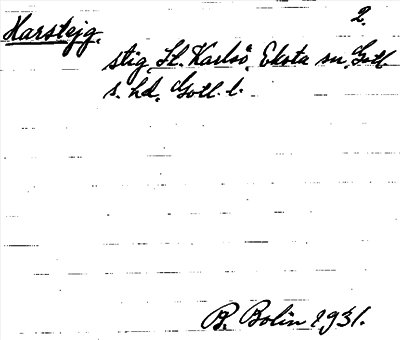 Harstejg. 2.
stig, St. Karlsö, Eksta sn, Gotl.
s. hd, Gotl. l.
B. Bolin 1931.